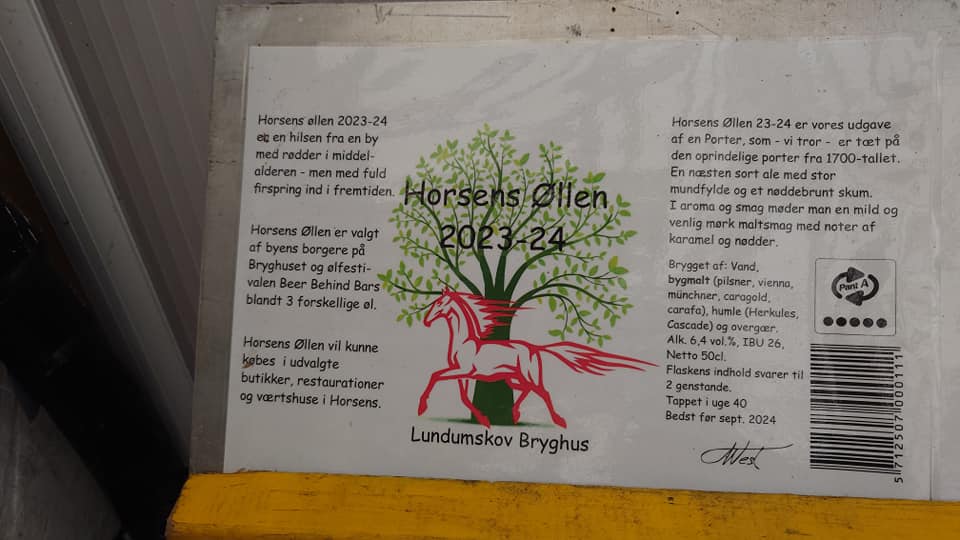 Horsens øllen 2023-24
er en hilsen fra en by
med rødder i middel-
alderen - men med fuld
firspring ind i fremtiden.
Horsens Øllen er valgt
af byens borgere på
Bryghuset og ølfesti-
valen Beer Behind Bars
blandt 3 forskellige øl.
Horsens Øllen vil kunne
købes i udvalgte
butikker, restaurationer
og værtshuse i Horsens.
Horsens Øllen
2023-24
Lundumskov Bryghus
Horsens Øllen 23-24 er vores udgave
af en Porter, som - vi tror - er tæt på
den oprindelige porter fra 1700-tallet.
En næsten sort ale med stor
mundfylde og et nøddebrunt skum.
I aroma og smag møder man en mild og
venlig mørk maltsmag med noter af
karamel og nødder.
Brygget af: Vand,
bygmalt (pilsner, vienna,
münchner, caragold,
carafa), humle (Herkules,
Cascade) og overgær.
Alk. 6,4 vol.%, IBU 26,
Netto 50cl.
Flaskens indhold svarer til
2 genstande.
Tappet i uge 40
Bedst før sept. 2024
Pant A
5 712507 000111
West